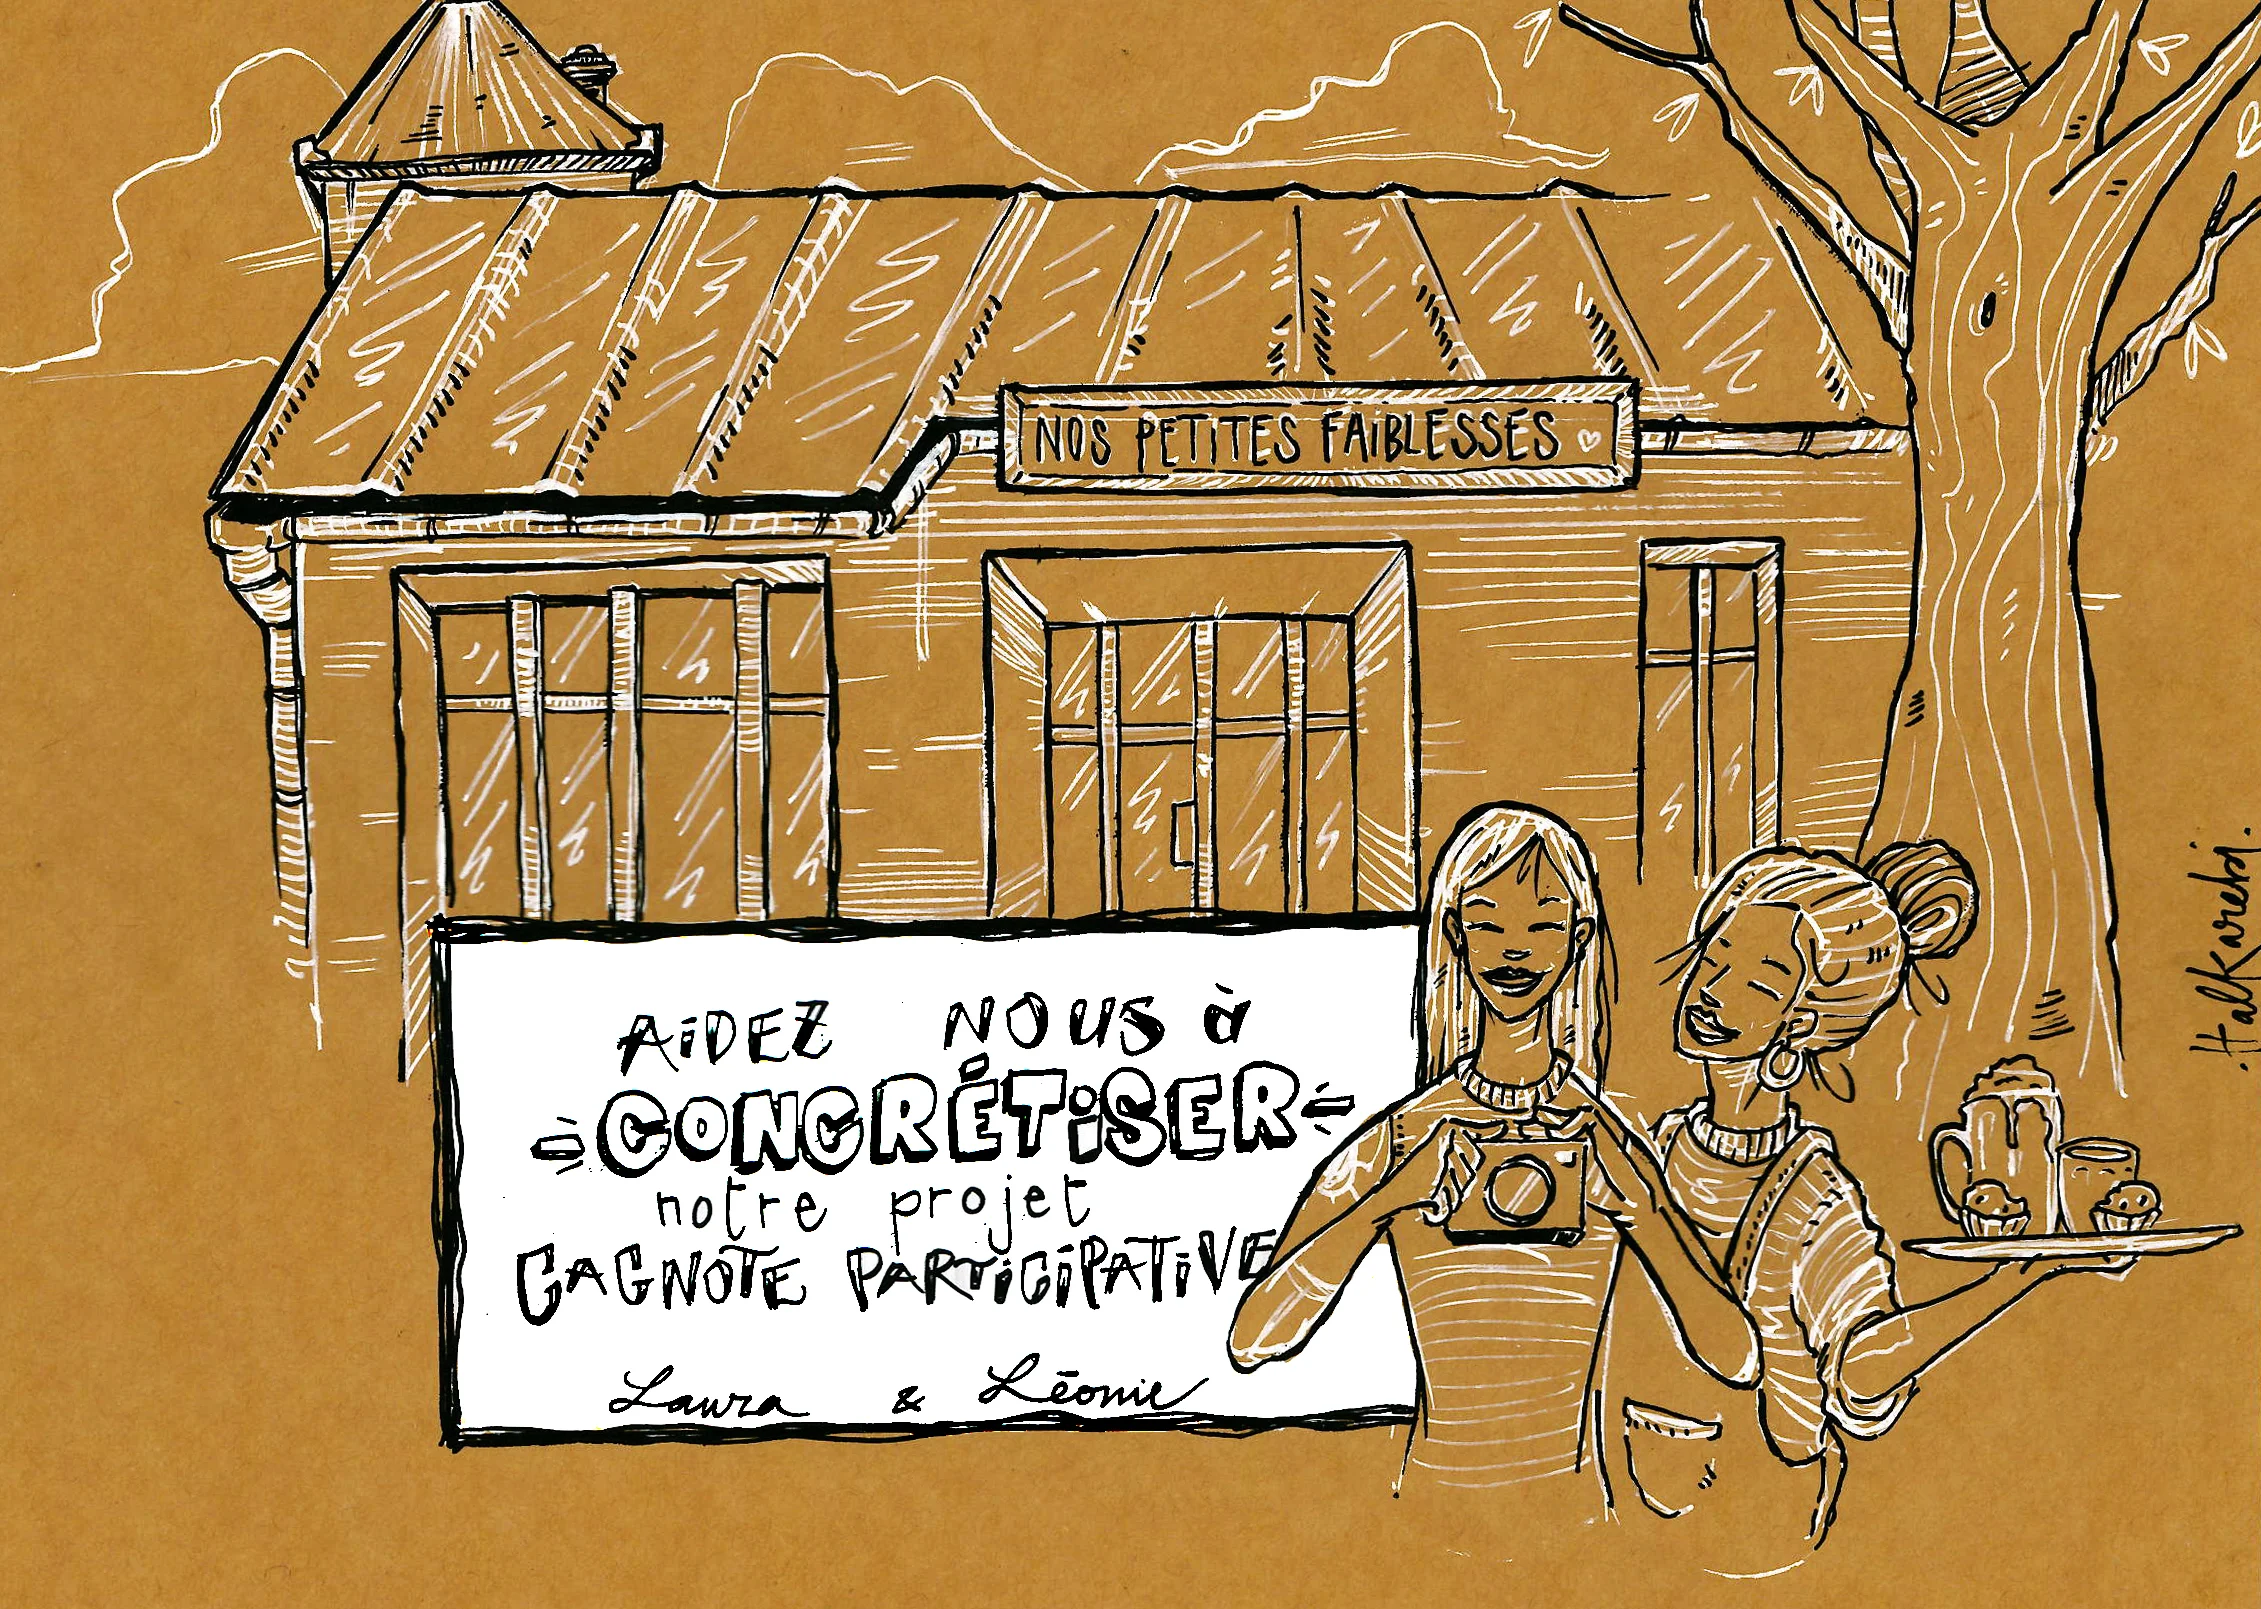 NOS PETITES FAIBLESSES
AIDEZ NOUS à
CONCRÉTISER
notre projet
CAGNOTE PARTICIPATIVE
Laura & Léonie
Halkarebi.